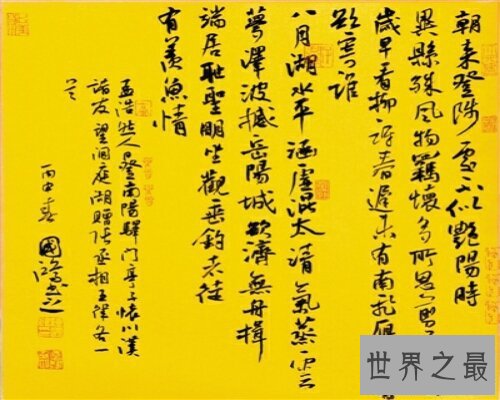 朝来登陟處不似艷陽時
異縣殊風物羈懷多所思剪
歲早看柳訝春遲未有南飛雁
欲寄誰
八月湖水平涵虛混太清氣蒸雲
夢澤波撼岳陽城欲濟無舟楫
端居耻聖明坐觀垂釣者徒
有羨魚情
孟浩然登南陽驛門亭子懷川漢
諸友望洞庭湖贈張丞相五律各一
丙申春
世界之最